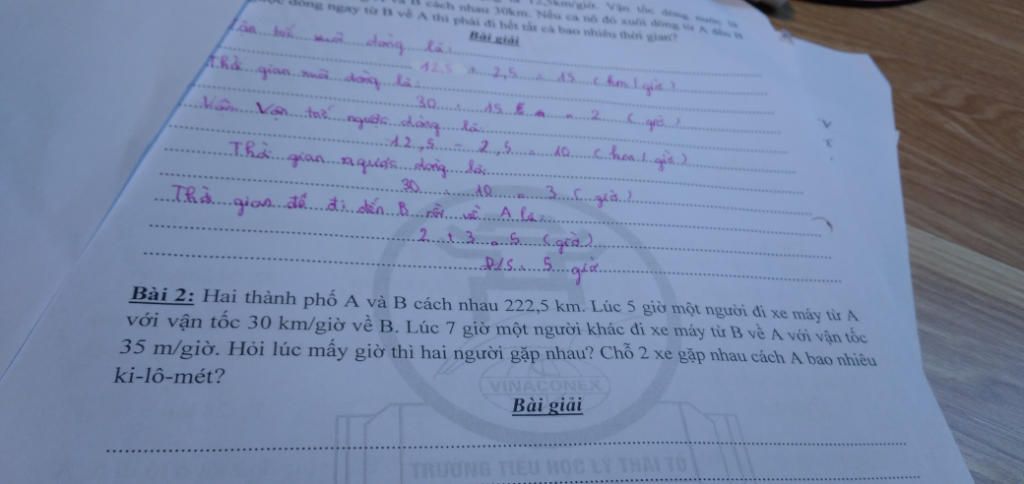 12,5km/giờ. Vận tốc dòng nước là
A và B cách nhau 30km. Nếu ca nô đó xuôi dòng từ A đến B
ngược dòng ngay từ B về A thì phải đi hết tất cả bao nhiêu thời gian?
Bài giải
tốc xuôi dòng là:
12,5 + 2,5 = 15 (km/giờ)
Thời gian xuôi dòng là:
30 : 15 = 2 (giờ)
Vận tốc ngược dòng là:
12,5 - 2,5 = 10 (km/giờ)
Thời gian ngược dòng là:
30 : 10 = 3 (giờ)
Thời gian để đi đến B rồi về A là:
2 + 3 = 5 (giờ)
Đ/S: 5 giờ
Bài 2: Hai thành phố A và B cách nhau 222,5 km. Lúc 5 giờ một người đi xe máy từ A
với vận tốc 30 km/giờ về B. Lúc 7 giờ một người khác đi xe máy từ B về A với vận tốc
35 m/giờ. Hỏi lúc mấy giờ thì hai người gặp nhau? Chỗ 2 xe gặp nhau cách A bao nhiêu
ki-lô-mét?
VINACONEX
Bài giải
TRƯỜNG TIỂU HỌC LÝ THÁI TỔ